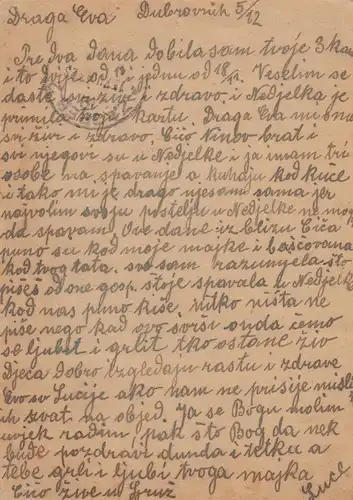 Draga Eva Dubrovnik 5/12
Pre dva dana dobila sam tvoje 3 kar
i to dvije od i jednu od 18/11. Veselim se
da ste svi živi i zdravo i Nedjelka je
primila tvoju kartu. Draga Eva mi smo
svi živi i zdravo. Ćićo Ninov brat i
svi njegovi su u Nedjelke i ja imam tri
osobe na spavanje a kuhaju kod kuće
i tako mi je drago njesam sama jer
najvolim svoju postelju u Nedjelke ne mogu
da spavam. Ove dane iz blizu Ćića
puno su kod moje majke i
kod tvog tata. sve sam razumjela što
pišeš od one gosp. što je spavala u Nedjelke
kod nas puno kiše. nitko ništa ne
piše nego kad ovo svrši onda ćemo
se ljubit i grlit tko ostane živ
Djeca dobro izgledaju rastu i zdrave
Evo sv Lucije ako nam ne prisije
ih zvat na objed. Ja se Bogu molim
uvjek radim, pak što Bog da nek
bude pozdravi dunda i tetku a
tebe grli i ljubi tvoja majka
Ćićo žive u Gruž